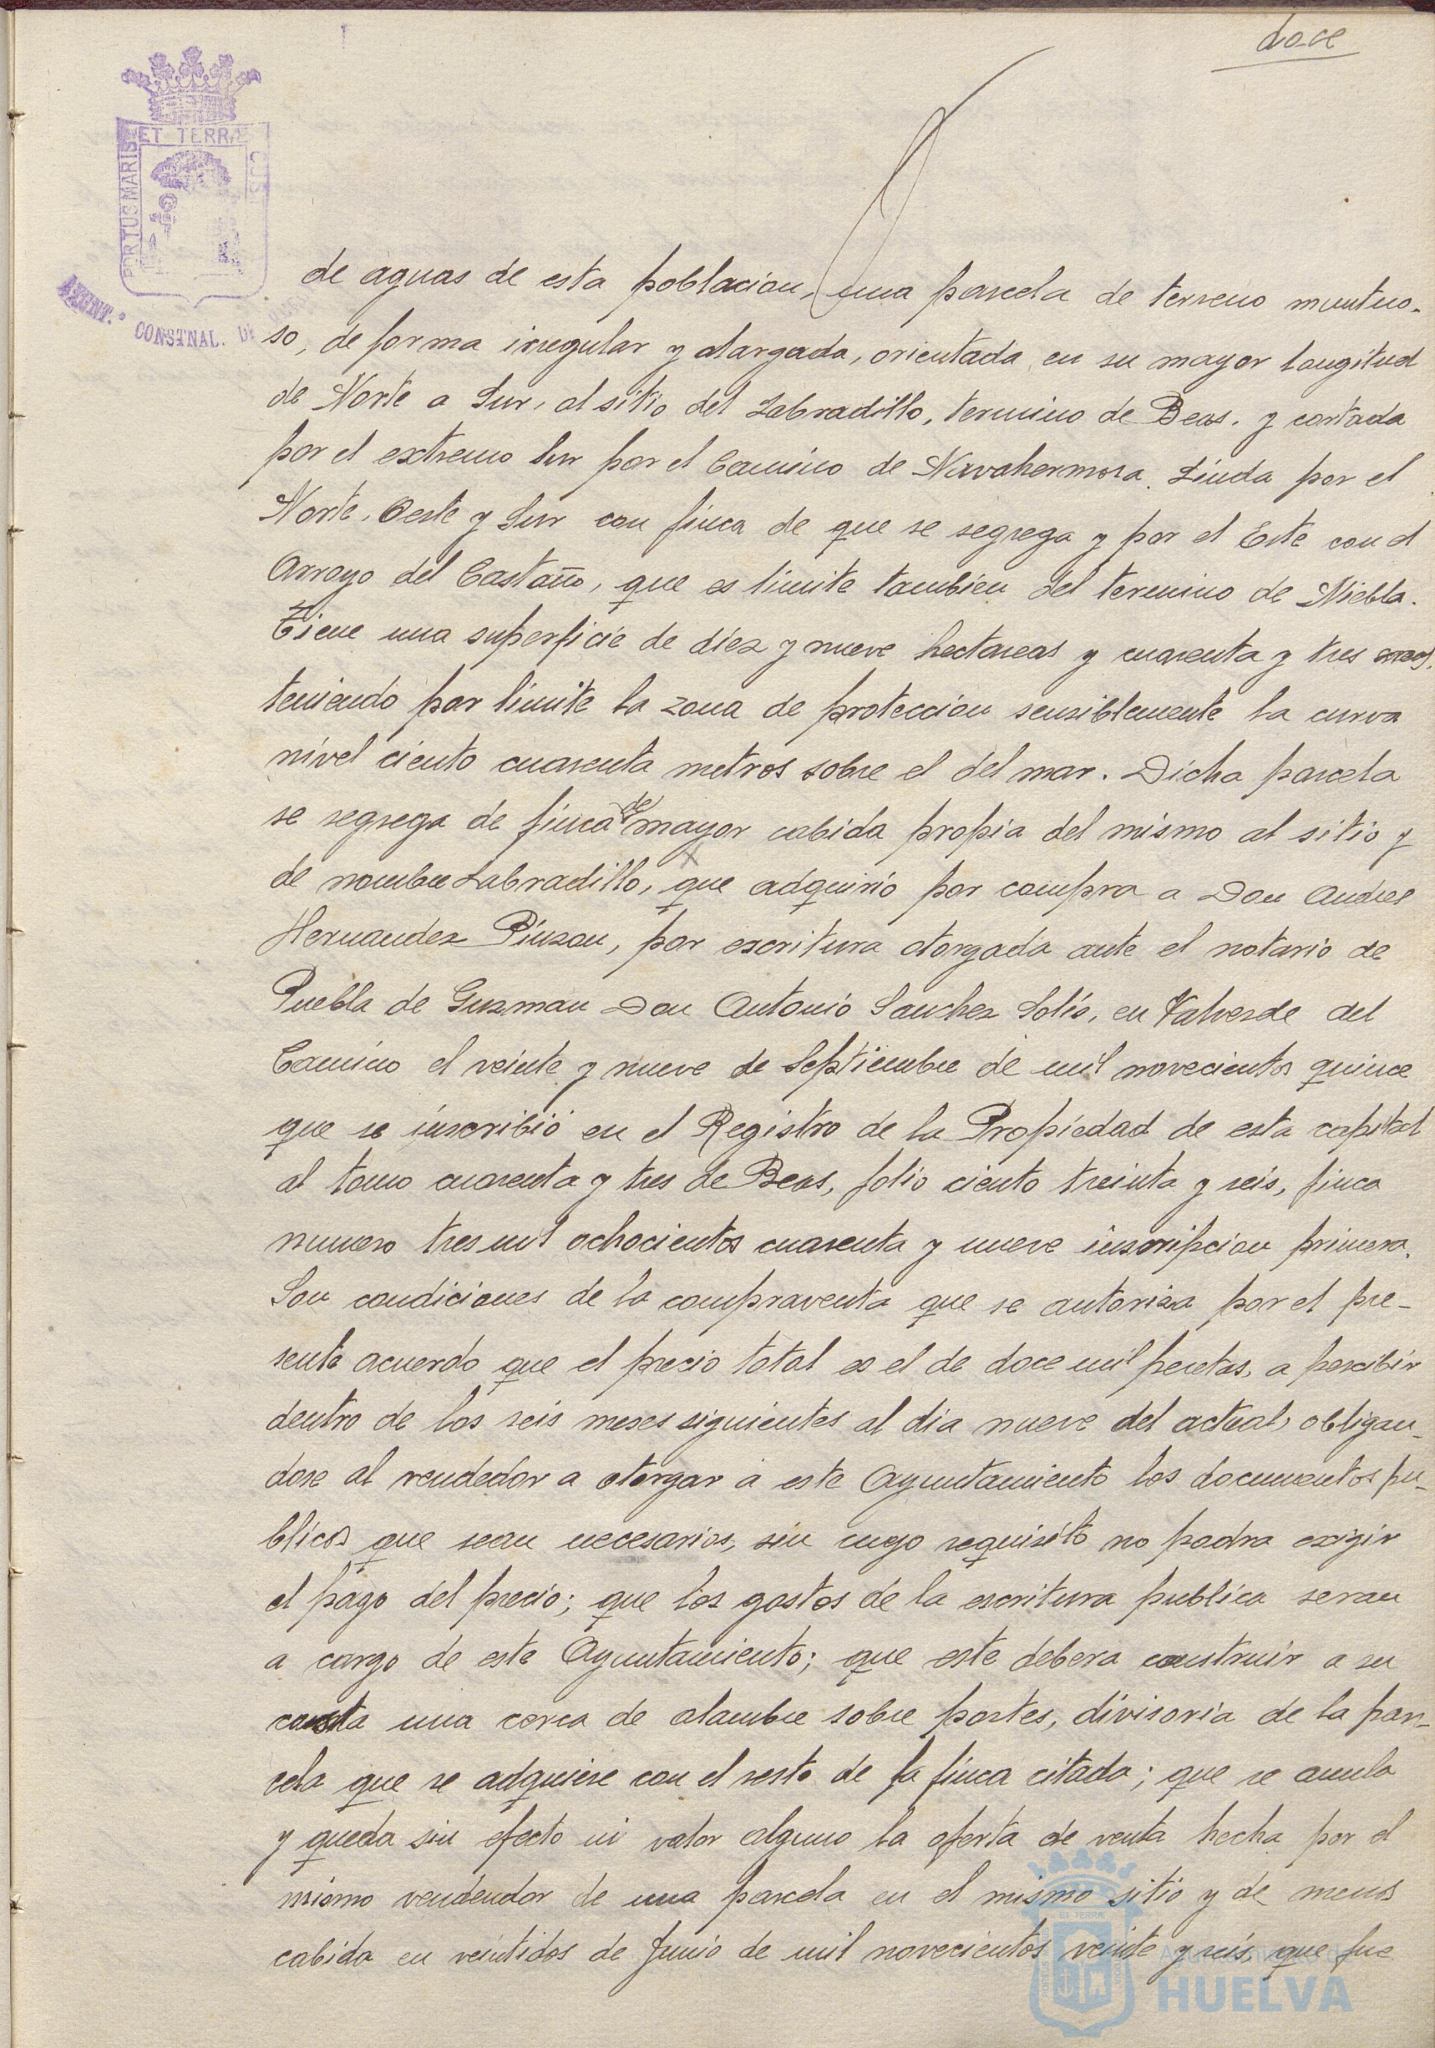 doce
ET TERRÆ
PORTUS MARIS
CUS
AYUNT.º CONSTNAL. DE
de aguas de esta poblacion, una parcela de terreno muntuo-
so, de forma irregular y alargada, orientada en su mayor longitud
de Norte a Sur, al sitio del Labradillo, termino de Beas. y cortada
por el extremo Sur por el Camino de Navahermosa. Linda por el
Norte, Oeste y Sur con finca de que se segrega y por el Este con el
Arroyo del Castaño, que es limite tambien del termino de Niebla.
Tiene una superficie de diez y nueve hectareas y cuarenta y tres areas,
teniendo por limite la zona de proteccion sensiblemente la curva
nivel ciento cuarenta metros sobre el del mar. Dicha parcela
se segrega de finca de mayor cabida propia del mismo al sitio y
de nombre Labradillo, que adquirió por compra a Don Andres
Hernandez Pinzon, por escritura otorgada ante el notario de
Puebla de Guzman Don Antonio Sanchez Solís, en Valverde del
Camino el veinte y nueve de Septiembre de mil novecientos quince
que se inscribió en el Registro de la Propiedad de esta capital
al tomo cuarenta y tres de Beas, folio ciento treinta y seis, finca
numero tres mil ochocientos cuarenta y nueve inscripcion primera.
Son condiciones de la compraventa que se autoriza por el pre-
sente acuerdo que el precio total es el de doce mil pesetas, a percibir
dentro de los seis meses siguientes al dia nueve del actual, obligan-
dose al vendedor a otorgar a este Ayuntamiento los documentos pu-
blicos que sean necesarios, sin cuyo requisito no podra exigir
el pago del precio; que los gastos de la escritura publica seran
a cargo de este Ayuntamiento; que este debera construir a su
costa una cerca de alambre sobre postes, divisoria de la par-
cela que se adquiere con el resto de la finca citada; que se anula
y queda sin efecto ni valor alguno la oferta de venta hecha por el
mismo vendendor de una parcela en el mismo sitio y de menos
cabida en veintidos de Junio de mil novecientos veinte y seis que fue
HUELVA